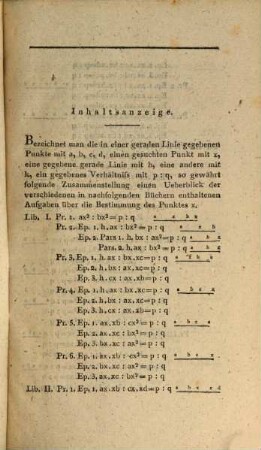 Inhaltsanzeige.
Bezeichnet man die in einer geraden Linie gegebenen
Punkte mit a, b, c, d, einen gesuchten Punkt mit x,
eine gegebene gerade Linie mit h, eine andere mit
k, ein gegebenes Verhältniſs mit p : q, so gewährt
folgende Zusammenstellung einen Ueberblick der
verschiedenen in nachfolgenden Büchern enthaltenen
Aufgaben über die Bestimmung des Punktes x.
Lib. I. Pr. 1. ax² : bx² = p : q
Pr. 2. Ep. 1. h. ax : bx² = p : q
Ep. 2. Pars 1. h. bx : ax² = p : q
Pars. 2. h. bx : ax² = p : q
Pr. 3. Ep. 1. h. ax : bx. xc = p : q
Ep. 2. h. bx : ax. xc = p : q
Pr. 4. Ep. 1. h. ax : bx. xc = p : q
Ep. 2. h. cx : ax. xb = p : q
Pr. 5. Ep. 1. ax. xb : cx² = p : q
Ep. 2. ax. xc : bx² = p : q
Ep. 3. bx. xc : ax² = p : q
Pr. 6. Ep. 1. ax. xb : cx² = p : q
Ep. 2. bx. xc : ax² = p : q
Ep. 3. ax. xc : bx² = p : q
Lib. II. Pr. 1. Ep. 1. ax. xb : cx. xd = p : q